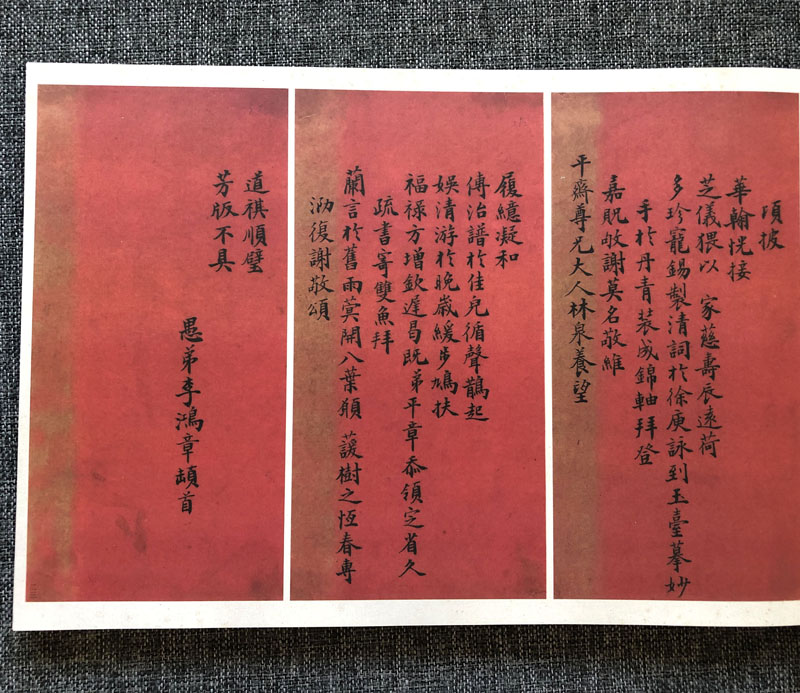 頃披
華翰恍接
芝儀猥以 家慈壽辰遠荷
多珍寵錫製清詞於徐庾詠到玉臺摹妙
手於丹青裝成錦軸拜登
嘉貺敂謝莫名敬維
平齋尊兄大人林泉養望
履繶凝和
傅治譜於佳兒循聲鵲起
娛清游於晚歲緩步鳩扶
福祿方增欽遲曷既弟平章忝領定省久
疏書寄雙魚拜
蘭言於舊雨蓂開八葉頫 蘐樹之恆春專
泐復謝敬頌
道祺順璧
芳版不具
愚弟李鴻章頓首